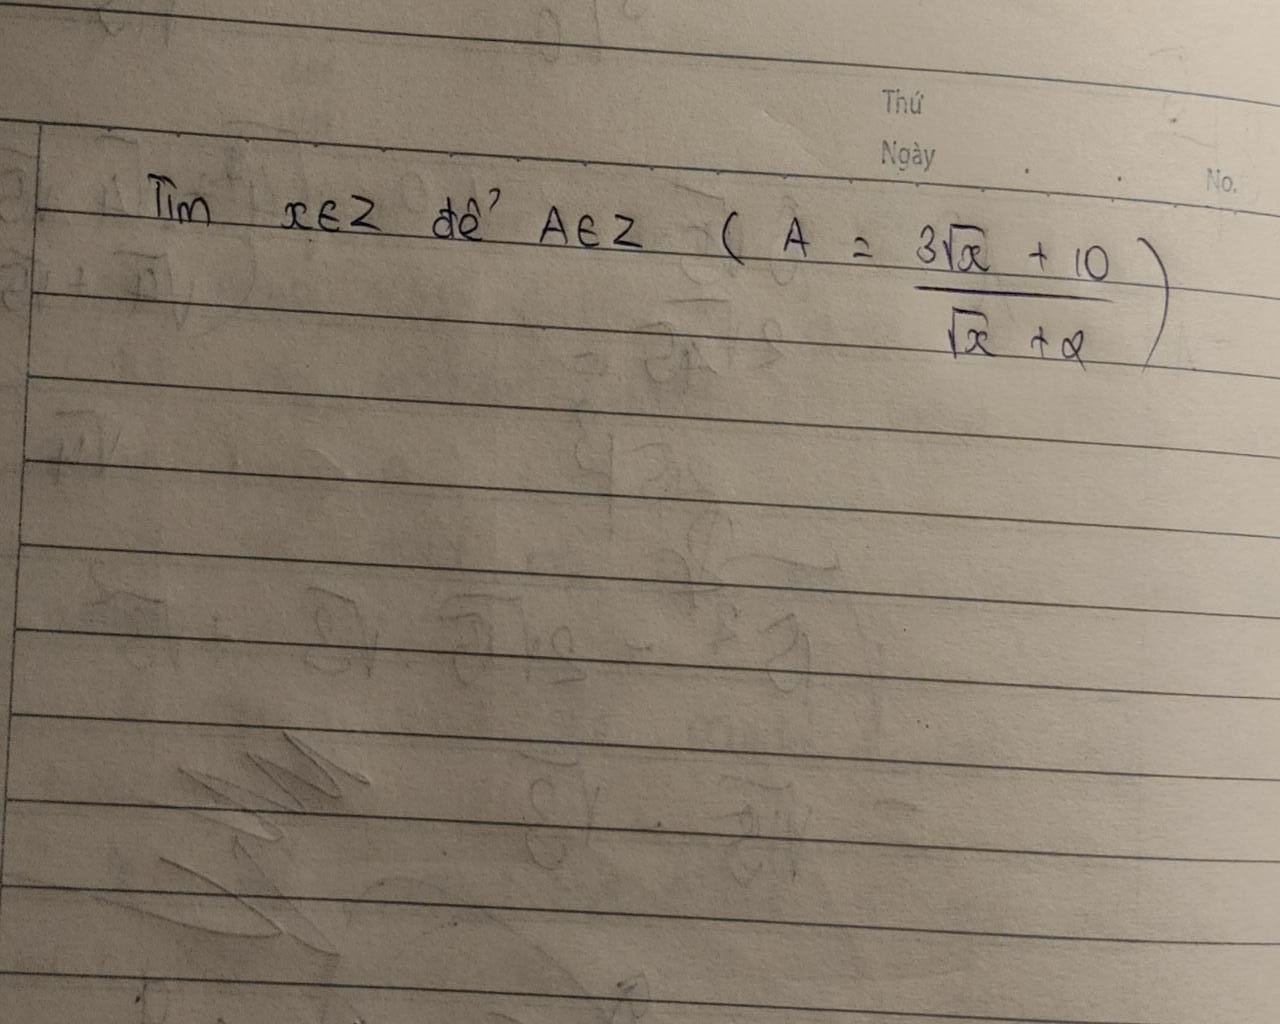 Thứ
Ngày
No.
Tìm x∈Z để A∈Z ( A = (3√x + 10)/(√x + 2) )